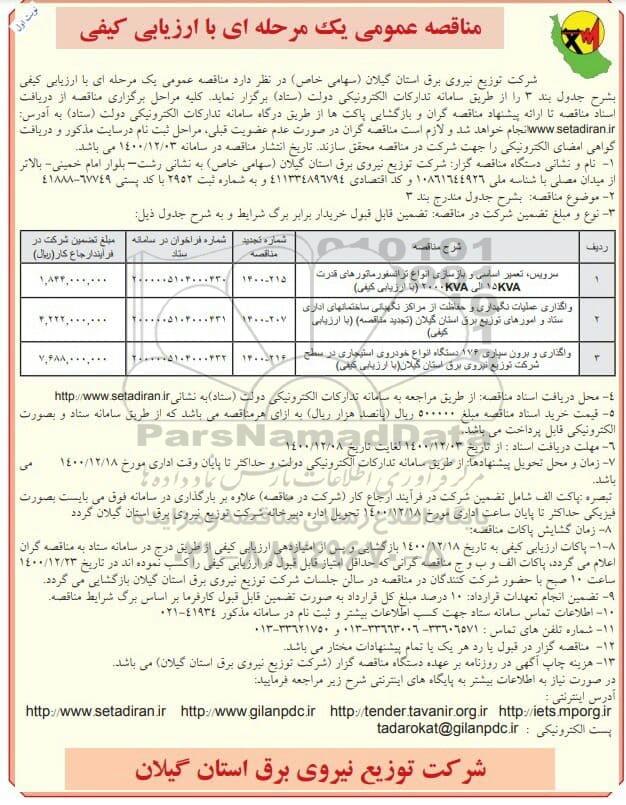 نوبت اول
مناقصه عمومی یک مرحله ای با ارزیابی کیفی
شرکت توزیع نیروی برق استان گیلان (سهامی خاص) در نظر دارد مناقصه عمومی یک مرحله ای با ارزیابی کیفی
بشرح جدول بند ۳ را از طریق سامانه تدارکات الکترونیکی دولت (ستاد) برگزار نماید. کلیه مراحل برگزاری مناقصه از دریافت
اسناد مناقصه تا ارائه پیشنهاد مناقصه گران و بازگشایی پاکت ها از طریق درگاه سامانه تدارکات الکترونیکی دولت (ستاد) به آدرس:
www.setadiran.ir انجام خواهد شد و لازم است مناقصه گران در صورت عدم عضویت قبلی، مراحل ثبت نام درسایت مذکور و دریافت
گواهی امضای الکترونیکی را جهت شرکت در مناقصه محقق سازند. تاریخ انتشار مناقصه در سامانه ۱۴۰۰/۱۲/۰۳ می باشد.
۱- نام و نشانی دستگاه مناقصه گزار: شرکت توزیع نیروی برق استان گیلان (سهامی خاص) به نشانی رشت– بلوار امام خمینی- بالاتر
از میدان مصلی با شناسه ملی ۱۰۸۶۱۶۴۴۹۲۶ و کد اقتصادی ۴۱۱۳۳۴۸۹۶۷۹۴ و به شماره ثبت ۲۹۵۲ با کد پستی ۶۷۷۴۹-۴۱۸۸۸
۲- موضوع مناقصه: بشرح جدول مندرج بند ۳
۳- نوع و مبلغ تضمین شرکت در مناقصه: تضمین قابل قبول خریدار برابر برگ شرایط و به شرح جدول ذیل:
ردیف شرح مناقصه شماره تجدید مناقصه شماره فراخوان در سامانه ستاد مبلغ تضمین شرکت در فرآیندارجاع کار(ریال)
۱ سرویس، تعمیر اساسی و بازسازی انواع ترانسفورماتورهای قدرت ۱۵KVA الی ۲۰۰۰KVA (با ارزیابی کیفی) ۱۴۰۰-۲۱۵ ۲۰۰۰۰۰۵۱۰۴۰۰۰۴۳۰ ۱,۸۴۴,۰۰۰,۰۰۰
۲ واگذاری عملیات نگهداری و حفاظت از مراکز نگهبانی ساختمانهای اداری ستاد و امورهای توزیع برق استان گیلان (تجدید مناقصه) (با ارزیابی کیفی) ۱۴۰۰-۲۰۷ ۲۰۰۰۰۰۵۱۰۴۰۰۰۴۳۱ ۴,۲۲۲,۰۰۰,۰۰۰
۳ واگذاری و برون سپاری ۱۷۶ دستگاه انواع خودروی استیجاری در سطح شرکت توزیع نیروی برق استان گیلان(با ارزیابی کیفی) ۱۴۰۰-۲۱۶ ۲۰۰۰۰۰۵۱۰۴۰۰۰۴۳۲ ۷,۶۸۸,۰۰۰,۰۰۰
۴- محل دریافت اسناد مناقصه: از طریق مراجعه به سامانه تدارکات الکترونیکی دولت (ستاد)به نشانی http://www.setadiran.ir
۵- قیمت خرید اسناد مناقصه مبلغ ۵۰۰۰۰۰ ریال (پانصد هزار ریال) به ازای هرمناقصه می باشد که از طریق سامانه ستاد و بصورت
الکترونیکی قابل پرداخت می باشد.
۶- مهلت دریافت اسناد : از تاریخ ۱۴۰۰/۱۲/۰۳ لغایت تاریخ ۱۴۰۰/۱۲/۰۸
۷- زمان و محل تحویل پیشنهادها: از طریق سامانه تدارکات الکترونیکی دولت و حداکثر تا پایان وقت اداری مورخ ۱۴۰۰/۱۲/۱۸ می
باشد.
تبصره :پاکت الف شامل تضمین شرکت در فرآیند ارجاع کار (شرکت در مناقصه) علاوه بر بارگذاری در سامانه فوق می بایست بصورت
فیزیکی حداکثر تا پایان ساعت اداری مورخ ۱۴۰۰/۱۲/۱۸ تحویل اداره دبیرخانه شرکت توزیع نیروی برق استان گیلان گردد
۸- زمان گشایش پاکات مناقصه:
۸-۱- پاکات ارزیابی کیفی به تاریخ ۱۴۰۰/۱۲/۱۸ بازگشایی و پس از امتیازدهی ارزیابی کیفی از طریق درج در سامانه ستاد به مناقصه گران
اعلام می گردد، پاکات الف و ب و ج مناقصه گرانی که حداقل امتیاز قابل قبول در ارزیابی کیفی را کسب نموده اند در تاریخ ۱۴۰۰/۱۲/۲۳
ساعت ۱۰ صبح با حضور شرکت کنندگان در مناقصه در سالن جلسات شرکت توزیع نیروی برق استان گیلان بازگشایی می گردد.
۹- تضمین انجام تعهدات قرارداد: ۱۰ درصد مبلغ کل قرارداد به صورت تضمین قابل قبول کارفرما بر اساس برگ شرایط مناقصه.
۱۰- اطلاعات تماس سامانه ستاد جهت کسب اطلاعات بیشتر و ثبت نام در سامانه مذکور ۴۱۹۳۴-۰۲۱
۱۱- شماره تلفن های تماس : ۳۳۶۰۶۵۷۱- ۳۳۶۶۳۰۰۶-۰۱۳ و ۳۳۶۲۱۷۵۰-۰۱۳
۱۲- مناقصه گزار در قبول یا رد هر یک یا تمام پیشنهادات مختار می باشد.
۱۳- هزینه چاپ آگهی در روزنامه بر عهده دستگاه مناقصه گزار (شرکت توزیع نیروی برق استان گیلان) می باشد.
در صورت نیاز به اطلاعات بیشتر به پایگاه های اینترنتی شرح زیر مراجعه فرمایید:
آدرس اینترنتی :
http://www.setadiran.ir http://www.gilanpdc.ir http://tender.tavanir.org.ir http://iets.mporg.ir
پست الکترونیکی : tadarokat@gilanpdc.ir
شرکت توزیع نیروی برق استان گیلان
ParsNamadData